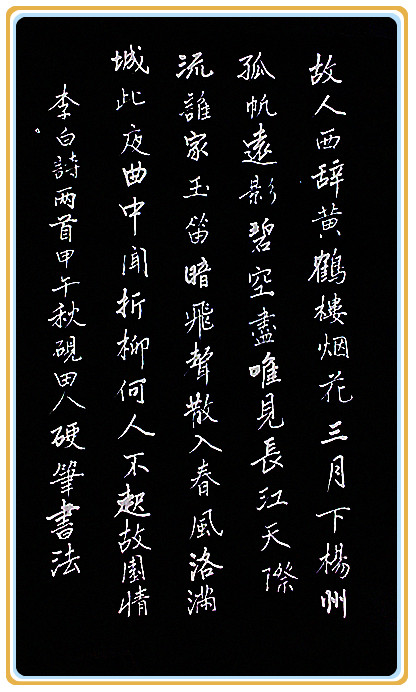 故人西辞黄鶴樓烟花三月下楊州
孤帆遠影碧空盡唯見長江天際
流誰家玉笛暗飛聲散入春風洛滿
城此夜曲中聞折柳何人不起故園情
李白詩两首甲午秋硯田人硬筆書法